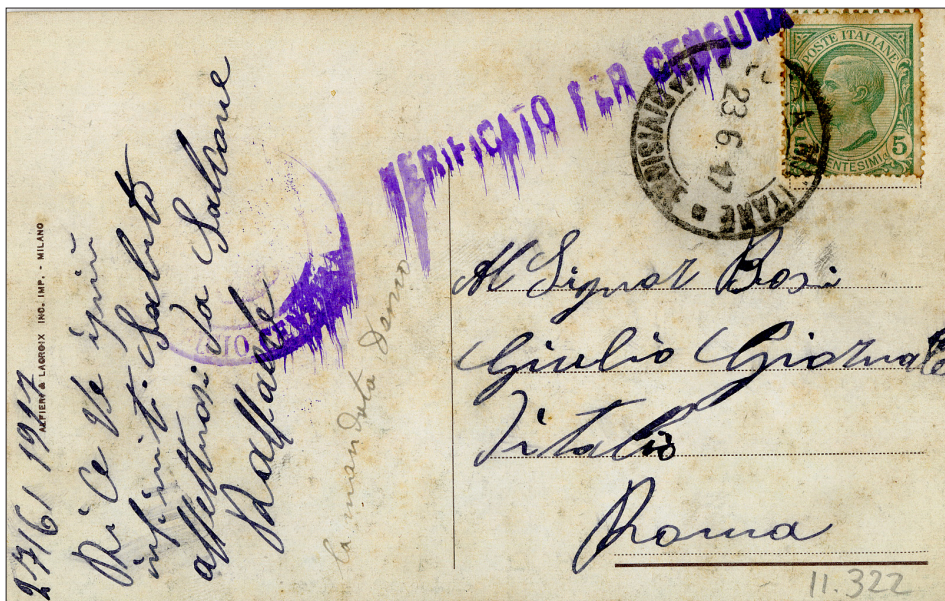 VERIFICATO PER CENSURA
POSTE ITALIANE
CENTESIMI 5
23 6 17
DIVISIONE
27/6/1917
Riceve i più
infiniti saluto
affettuosi da Salvone
Raffaele
ALFIERI & LACROIX INC. IMP. - MILANO
la mandata
Al Signor Bosi
Giulio Giornale
Italia
Roma
11.322